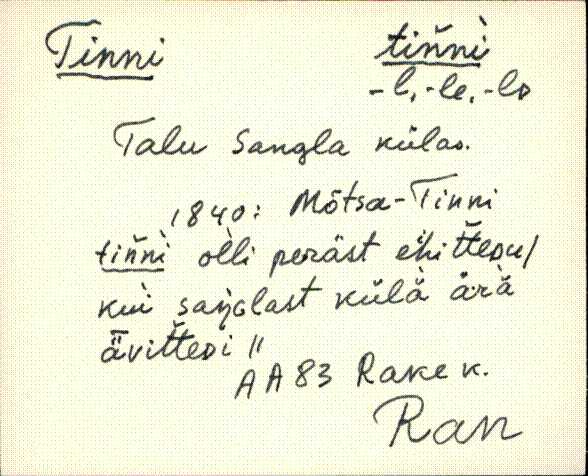 Tinni tiňni̇̀
-l, -le, -lᴅ
Talu Sangla külas.
1840: Mõtsa-Tinni
tiňni̇̀ olli peräst ehittedu/
kui saŋglast külä ärä
ävittedi "
AA83 Rake k.
Ran